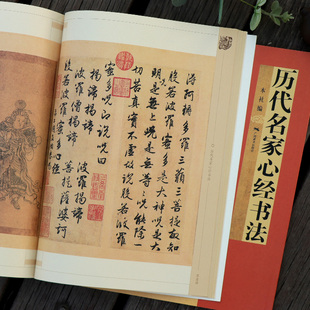 得阿耨多羅三藐三菩提故知
般若波羅蜜多是大神呪是大
明呪是無上呪是無等等呪能除一
切苦真實不虛故說般若波羅
蜜多呪即說呪曰
揭諦揭諦 波羅揭諦
波羅僧揭諦 菩提薩婆訶
般若波羅蜜多心經
历代名家心经书法
本社编